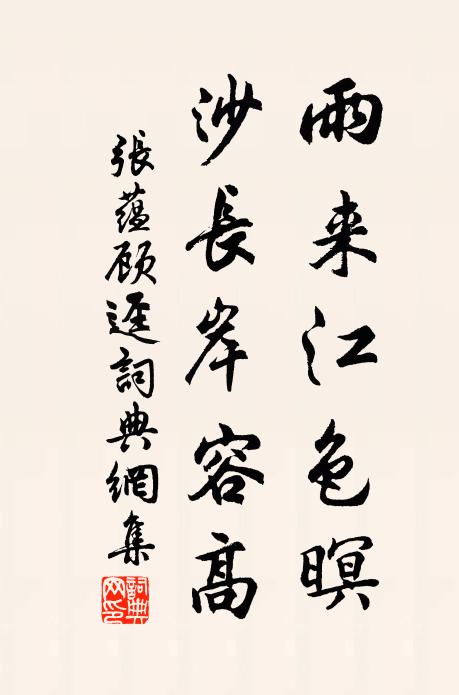 雨来江色暝
沙長岸容高
張蘊顧遅詞典網集
詞典網印